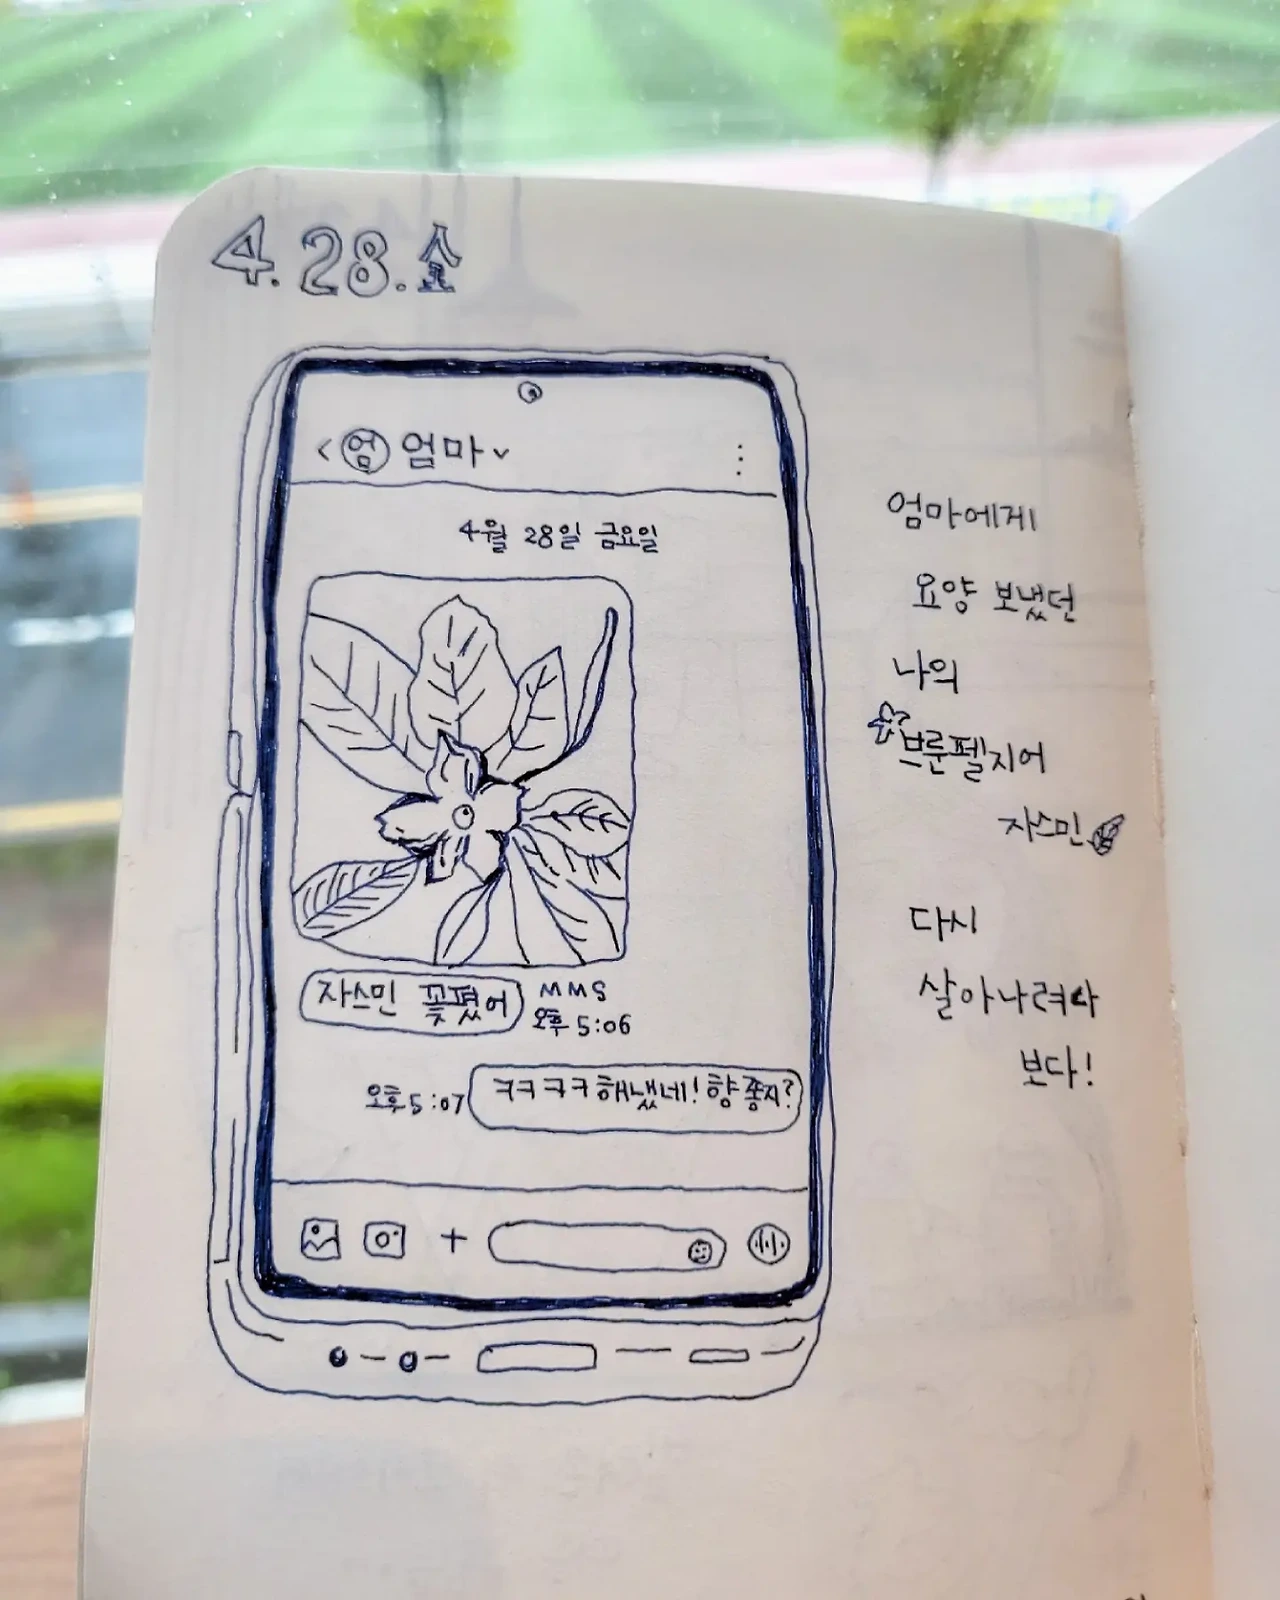 4. 28. 金
< 엄 엄마
4월 28일 금요일
자스민 꽃폈어
MMS
오후 5:06
오후 5:07
ㅋㅋㅋㅋ해냈네! 향 좋지?
+
엄마에게
요양 보냈던
나의
브룬펠지어
자스민
다시
살아나려나
보다!